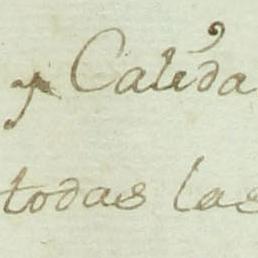 y Calida
todas las